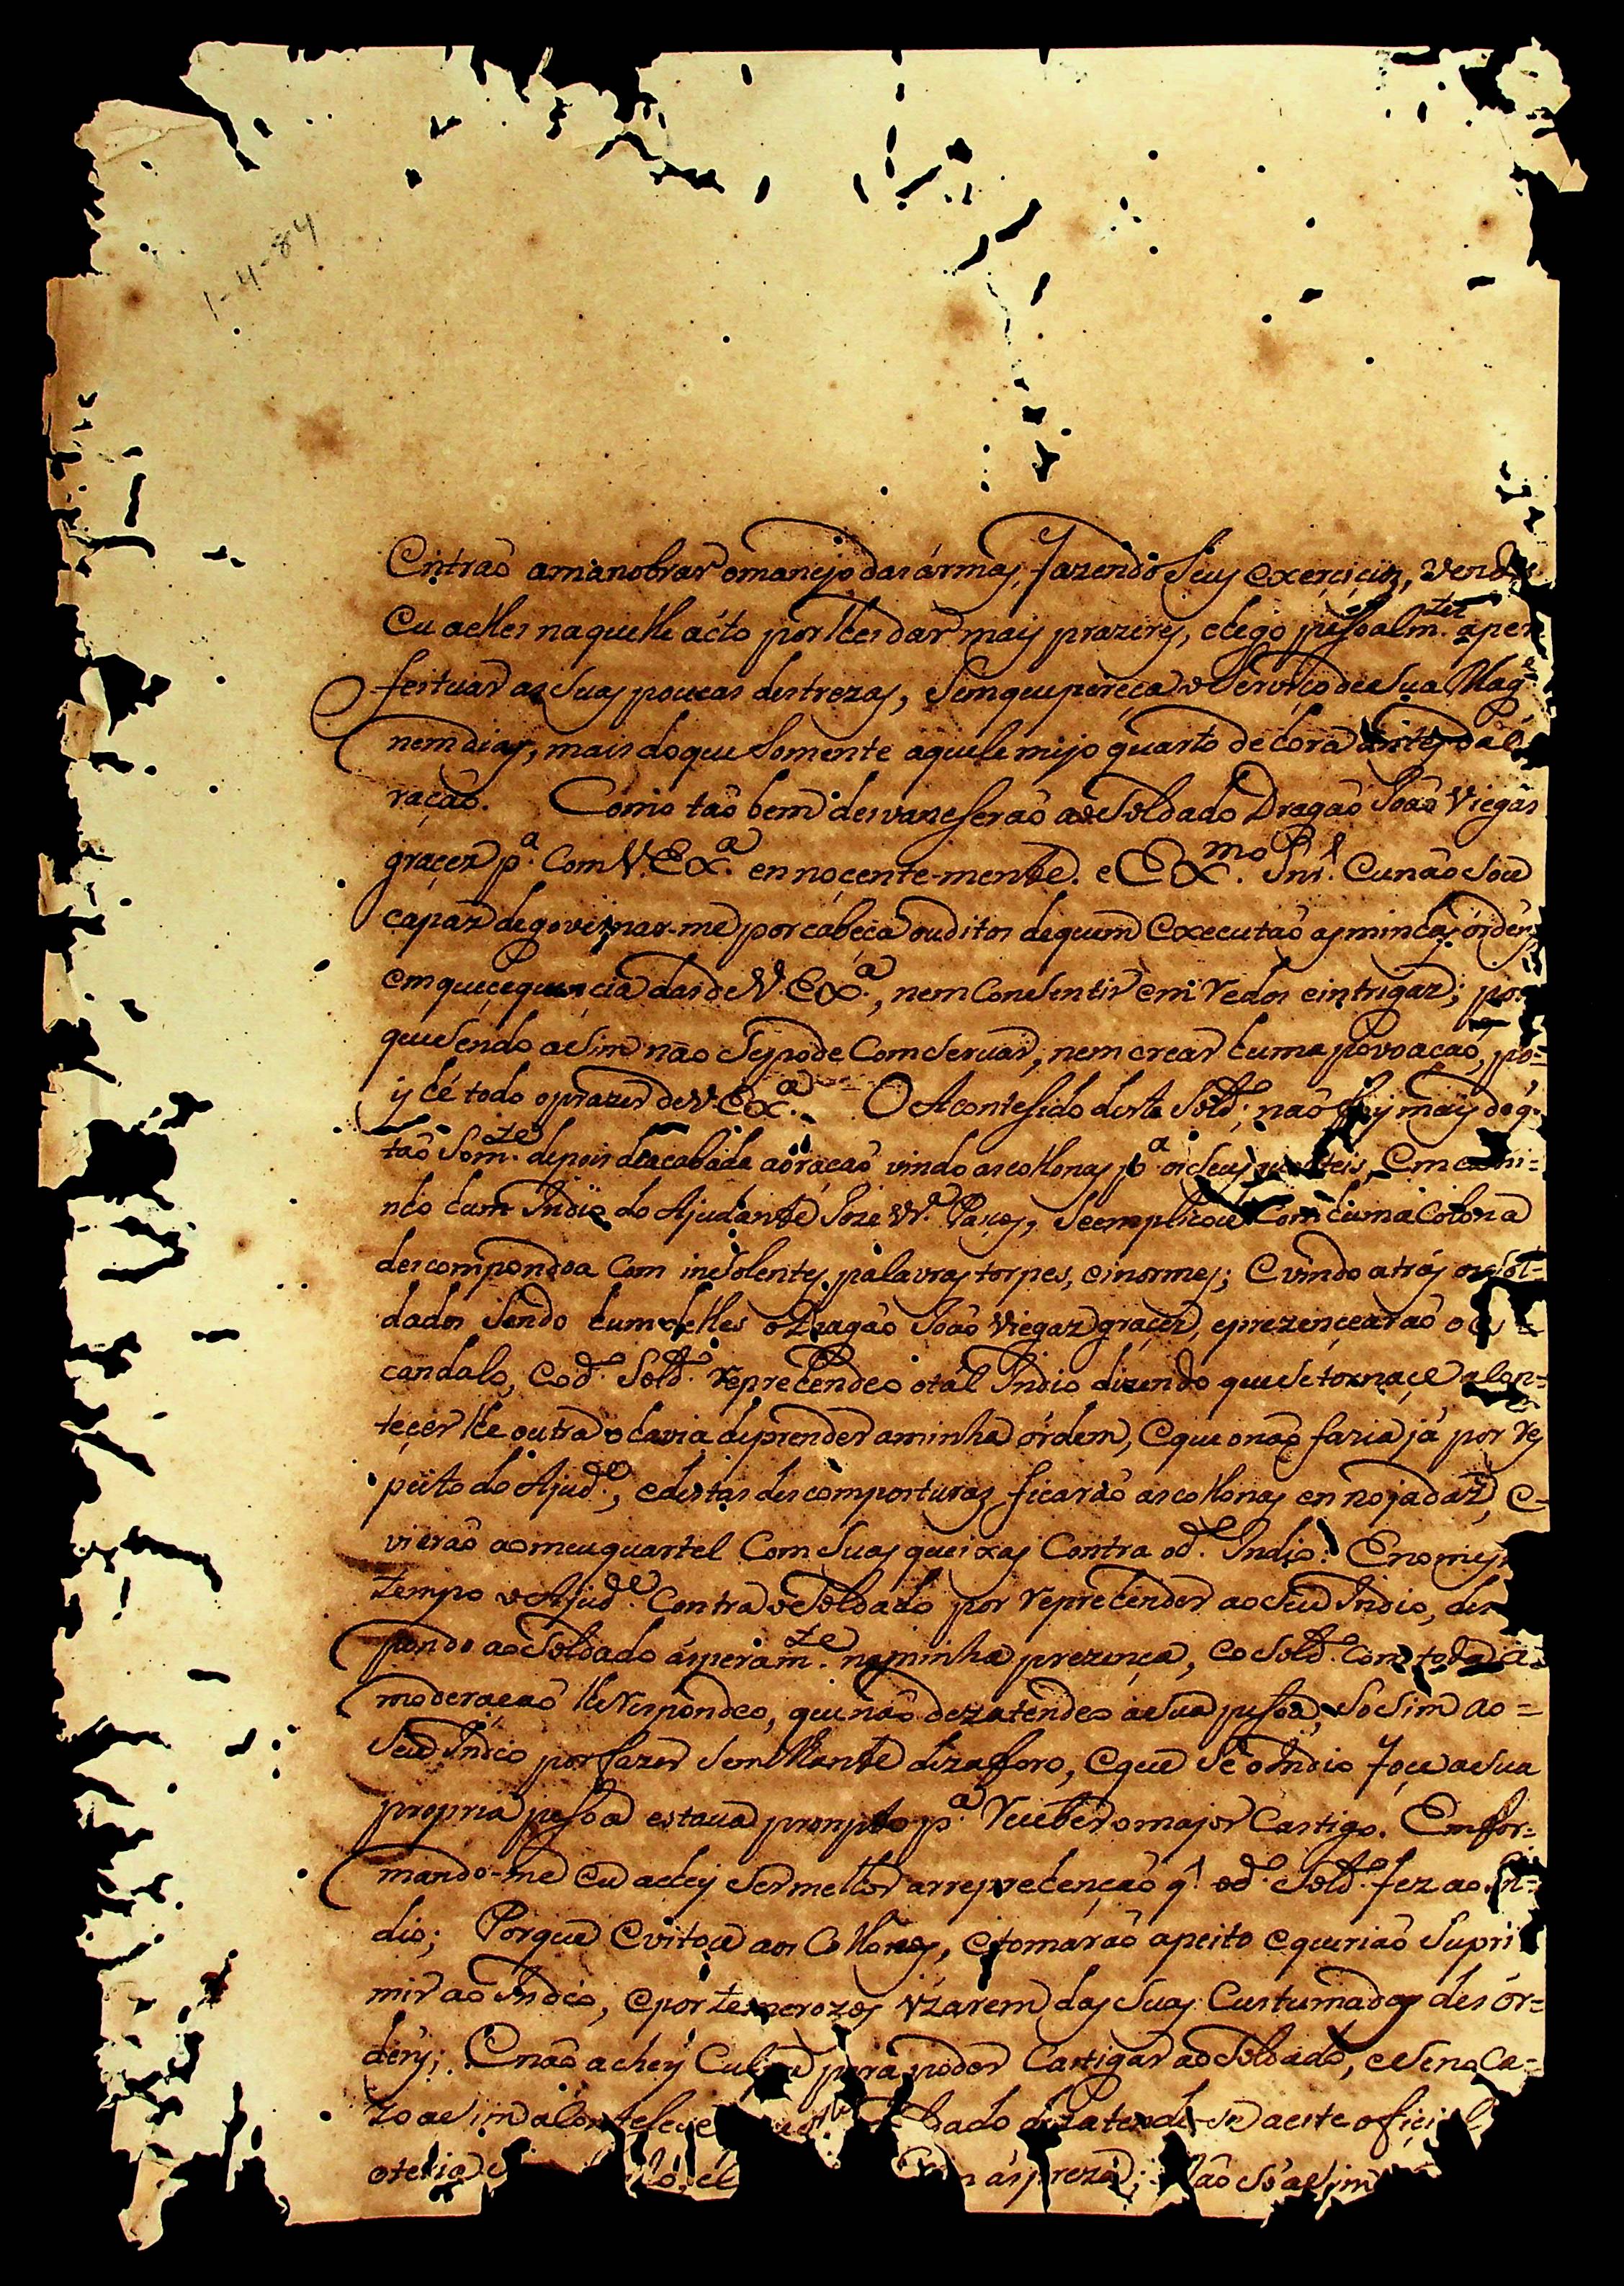 1-4-84
Entraõ amanobrar omanejo das ármas, fazendo seus exerçiçios, vendo
Eu aelles naquelle ácto por lhes dar mais prazeres, chego pesoalm.te aper
feituar as suas poucas destrezas, Sem que pereça o Serviço de sua Mag.e
nem dias, mais do que somente aquele mejo quarto de hora antes da ó
raçaõ. Como taõ bem desvaneseraõ ao Soldado Dragaõ Joaõ Viegas
graçez p.a Com V. Ex.a ennoçente-mente. e Ex.mo Snr. Eu naõ sou
capaz de governar-me por cabeça ou ditos de quem Executaõ as minhas órdens
em queçequençia das de V. Ex.a, nem Consentir em redos eintrigaz; por
que sendo asim naõ Se pode Comservar, nem crear huma povoaçaõ, po=
ys hé todo oprazer de V. Ex.a. O Acontesido deste Sold.o; naõ foy mais do q.
taõ som.te depois de acabada aóraçaõ vindo as collonas p.a os seus quarteis, Em
ndo hum Indio do Ajudante Joze Paçes, se emplicou Com huma Colona
descompondoa Com insolentes palavras torpes, einormes; Evindo atrás os sol=
dados sendo hum delles o Dragaõ Joaõ Viegaz graçez, eprezençearaõ o es
candalo, Eod.o Sold.o reprehendeo otal Indio dizendo que se tornaçe a Con=
teçer lhe outra o havia de prender aminha órdem, Eque onaõ faria já por res
peito do Ajud.e, edestas descomposturas, ficaraõ as collonas ennojadaz, E
vieraõ aomeu quartel Com suas queixas Contra od.o Indio: Enomes
tempo o Ajud.e Contra o Soldado por reprehender aoseu Indio, des
pondo ao Soldado ásperam.te na minha prezença, eo Sold.o Com toda a
moderaçaõ lhe respondeo, que naõ dezatendeo asua pesoa, So sim ao =
seu Indio por fazer Semilhante dezafforo, Eque se o Indio foçe asua
propria pesoa estava prompto p.a reçeber o major Castigo. Emfor=
mando-me Eu achey ser melhor arreprehençaõ q. od.o Sold.o fez ao In=
dio; Porque Evitou aos Collonos, Etomaraõ apeito equeriaõ Supri
mir ao Indio, Epor temerozos vzarem das suas Custumadas desór=
dens; Enaõ achey Culpa para poder Castigar ao Soldado, eseno Ca=
zo asim aContesese dado dezatende-se aeste ofiçial
oteria áspreza; Naõ só asim